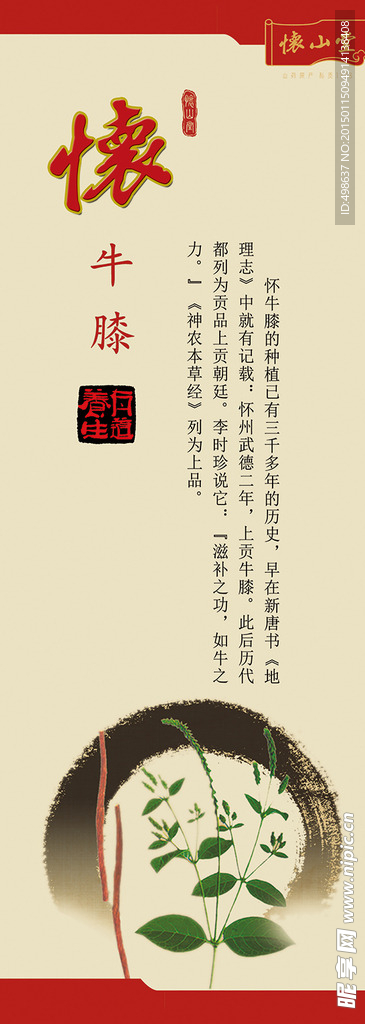 懷山堂
懷
懷山堂
牛膝
養生有道
怀牛膝的种植已有三千多年的历史，早在新唐书《地
理志》中就有记载：怀州武德二年，上贡牛膝。此后历代
都列为贡品上贡朝廷。李时珍说它：『滋补之功，如牛之
力。』《神农本草经》列为上品。
ID:498637 NO:20150115094914138408
昵享网 www.nipic.cn